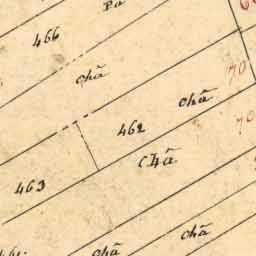 Pa
466
Chã
70
Chã
462
70
Chã
463
Chã
Chã